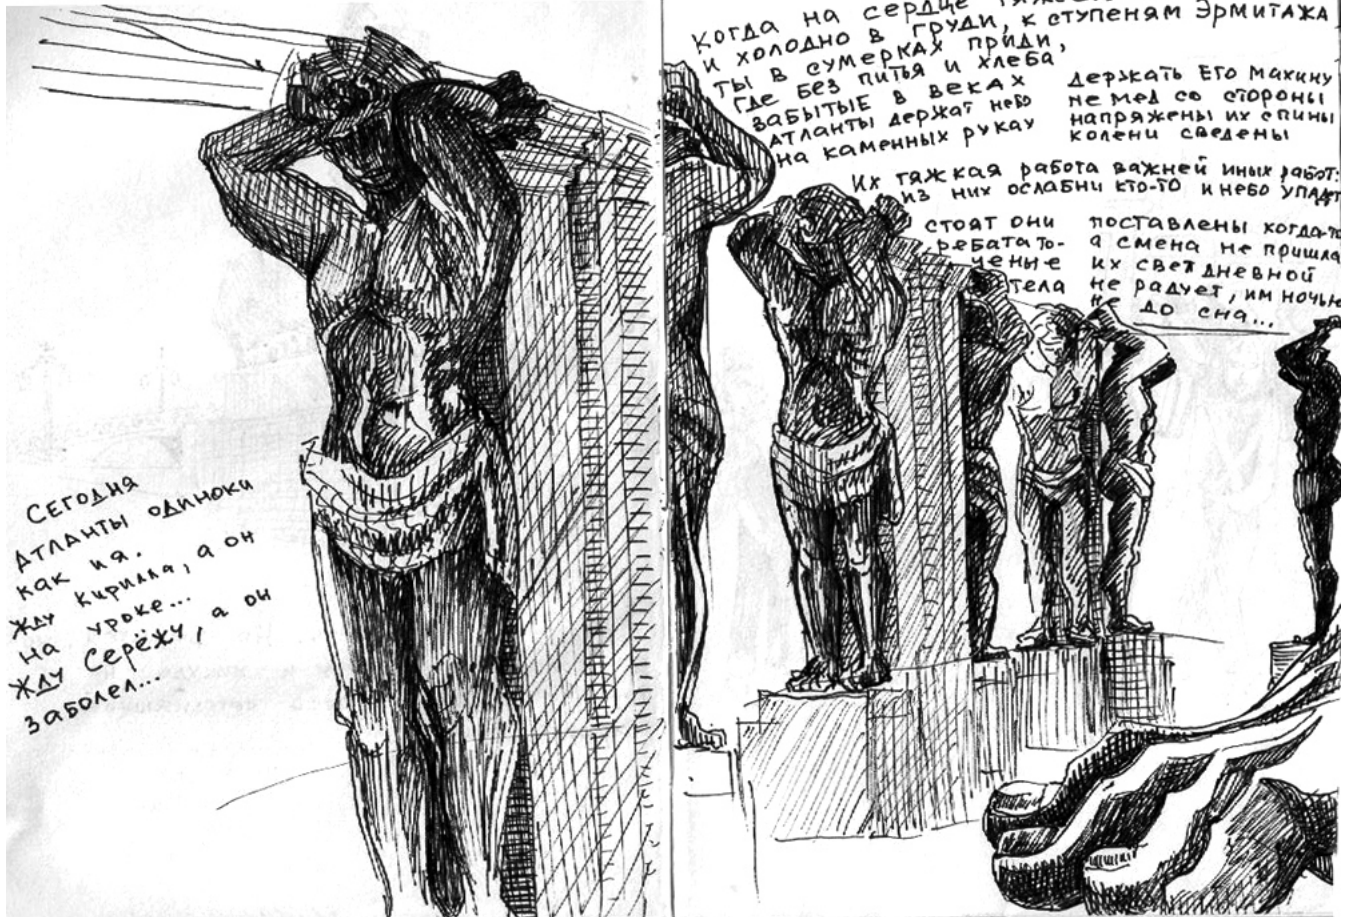 Сегодня
Атланты одиноки
как и я.
Жду Кирилла, а он
на уроке...
Жду Серёжу, а он
заболел...
Когда на сердце
и холодно в груди, к ступеням Эрмитажа
ты в сумерках приди,
где без питья и хлеба
забытые в веках
Атланты держат небо
на каменных руках
держать его махину
не мёд со стороны
напряжены их спины
колени сведены
Их тяжкая работа важней иных работ:
из них ослабни кто-то и небо упадёт
стоят они
ребята то-
ченые
тела
поставлены когда-то
а смена не пришла
их свет дневной
не радует, им ночью
не до сна...